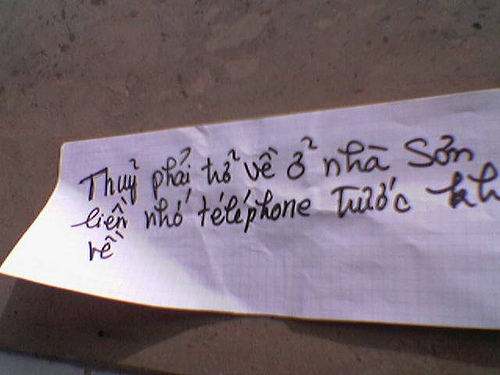 Thuỷ phải trở về ở nhà Sơn
liền nhớ téléphone trước kh
về